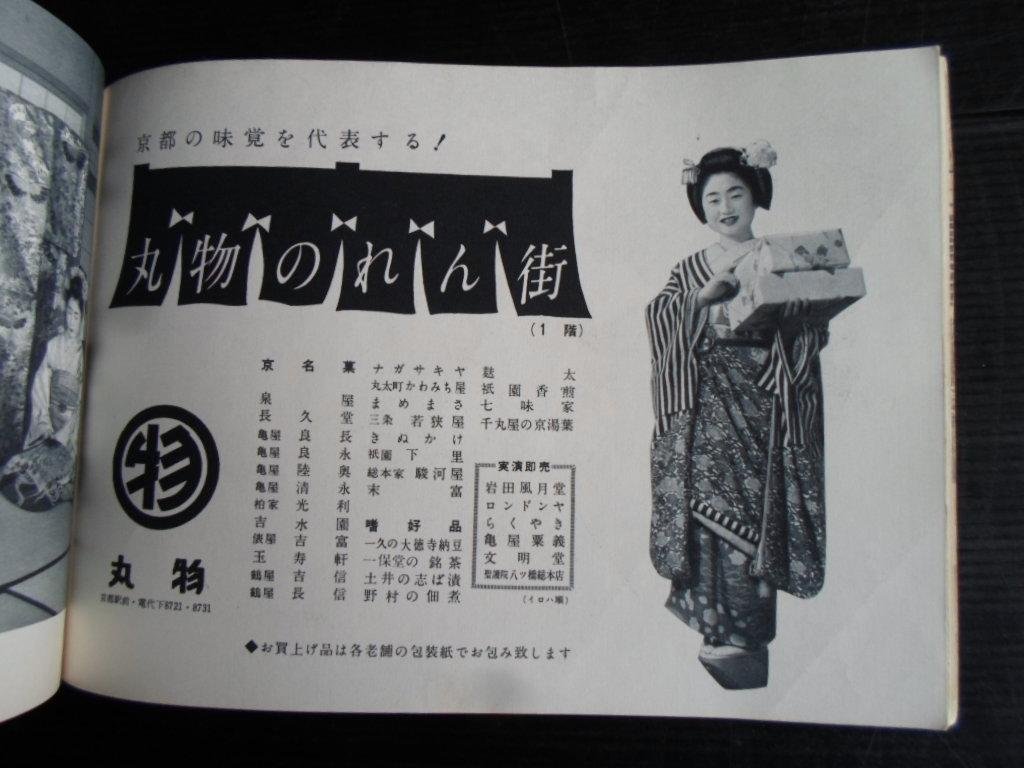 京都の味覚を代表する!
丸物のれん街
(1階)
京名菓
泉屋
長久堂
亀屋良長
亀屋良永
亀屋陸奥
亀屋清永
柏家光利
吉水園
俵屋吉富
玉寿軒
鶴屋吉信
鶴屋長信
ナガサキヤ
丸太町かわみち屋
まめまさ
三条若狭屋
きぬかけ
祇園下里
総本家駿河屋
末富
嗜好品
一久の大徳寺納豆
一保堂の銘茶
土井の志ば漬
野村の佃煮
麩太
祇園香煎
七味家
千丸屋の京湯葉
実演即売
岩田風月堂
ロンドンヤ
らくやき
亀屋粟義
文明堂
聖護院八ツ橋総本店
(イロハ順)
物
丸物
京都駅前・電代下8721・8731
◆お買上げ品は各老舗の包装紙でお包み致します